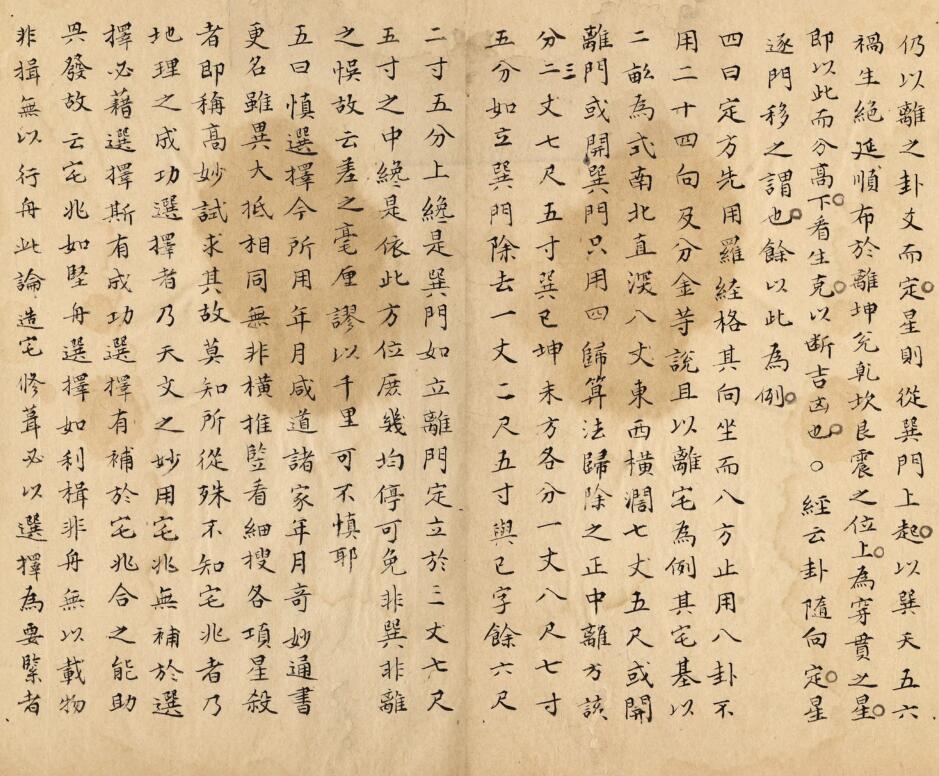 仍以離之卦爻而定星則從巽門上起以巽天五六
禍生絶延順布於離坤兊乾坎艮震之位上為穿貫之星
即以此而分高下看生克以斷吉凶也○經云卦隨向定星
逐門移之謂也餘以此為例
四曰定方先用羅経格其向坐而八方止用八卦不
用二十四向及分金等說且以離宅為例其宅基以
二畝為式南北直深八丈東西橫濶七丈五尺或開
離門或開巽門只用四歸算法歸除之正中離方該
分二三丈七尺五寸巽巳坤未方各分一丈八尺七寸
五分如立巽門除去一丈二尺五寸與巳字餘六尺
二寸五分上纔是巽門如立離門定立於三丈七尺
五寸之中纔是依此方位庻幾均停可免非巽非離
之悞故云差之毫厘謬以千里可不慎耶
五曰慎選擇今所用年月咸道諸家年月竒妙通書
更名雖異大抵相同無非橫推竪看細搜各項星殺
者即稱高妙試求其故莫知所從殊不知宅兆者乃
地理之成功選擇者乃天文之妙用宅兆無補於選
擇必藉選擇斯有成功選擇有補於宅兆合之能助
具發故云宅兆如堅舟選擇如利楫非舟無以載物
非揖無以行舟此論造宅修葺必以選擇為要緊者